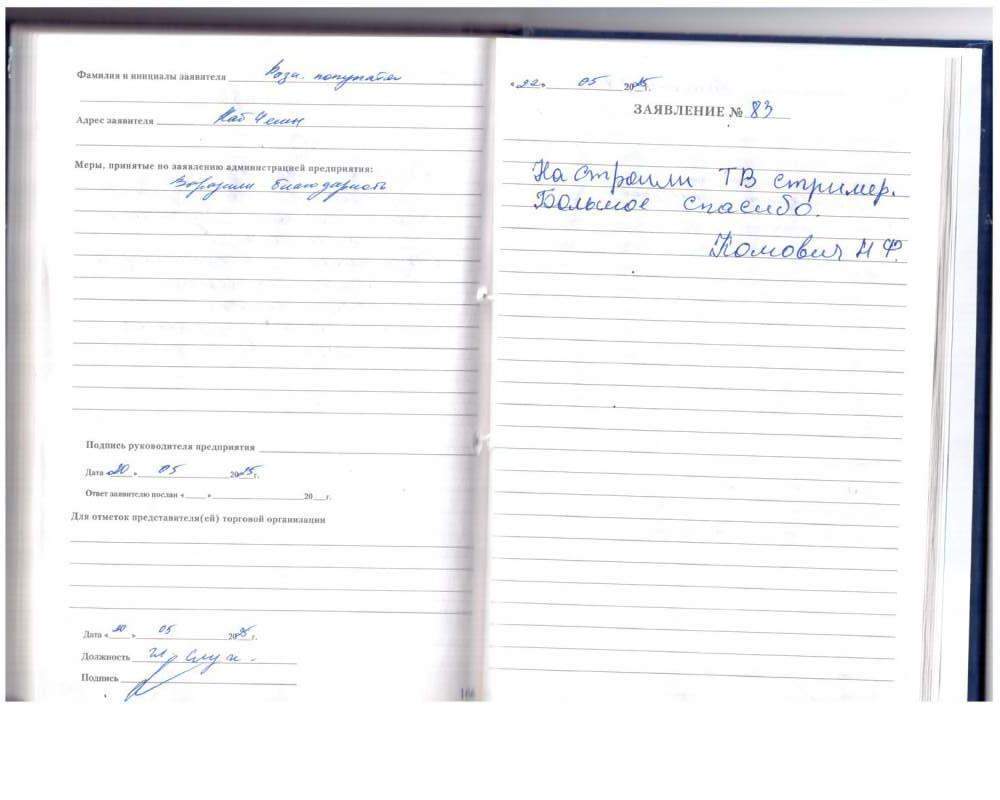 Фамилия и инициалы заявителя
Адрес заявителя Наб Челны
Меры, принятые по заявлению администрацией предприятия:
Выразили благодарность
Подпись руководителя предприятия
Дата «20» 05 2025 г.
Ответ заявителю послан « » 20 г.
Для отметок представителя(ей) торговой организации
Дата «20» 05 2025 г.
Должность
Подпись
166
«22» 05 2025 г.
ЗАЯВЛЕНИЕ № 83
Настроили ТВ стример.
Большое спасибо.
Комович Н Ф.